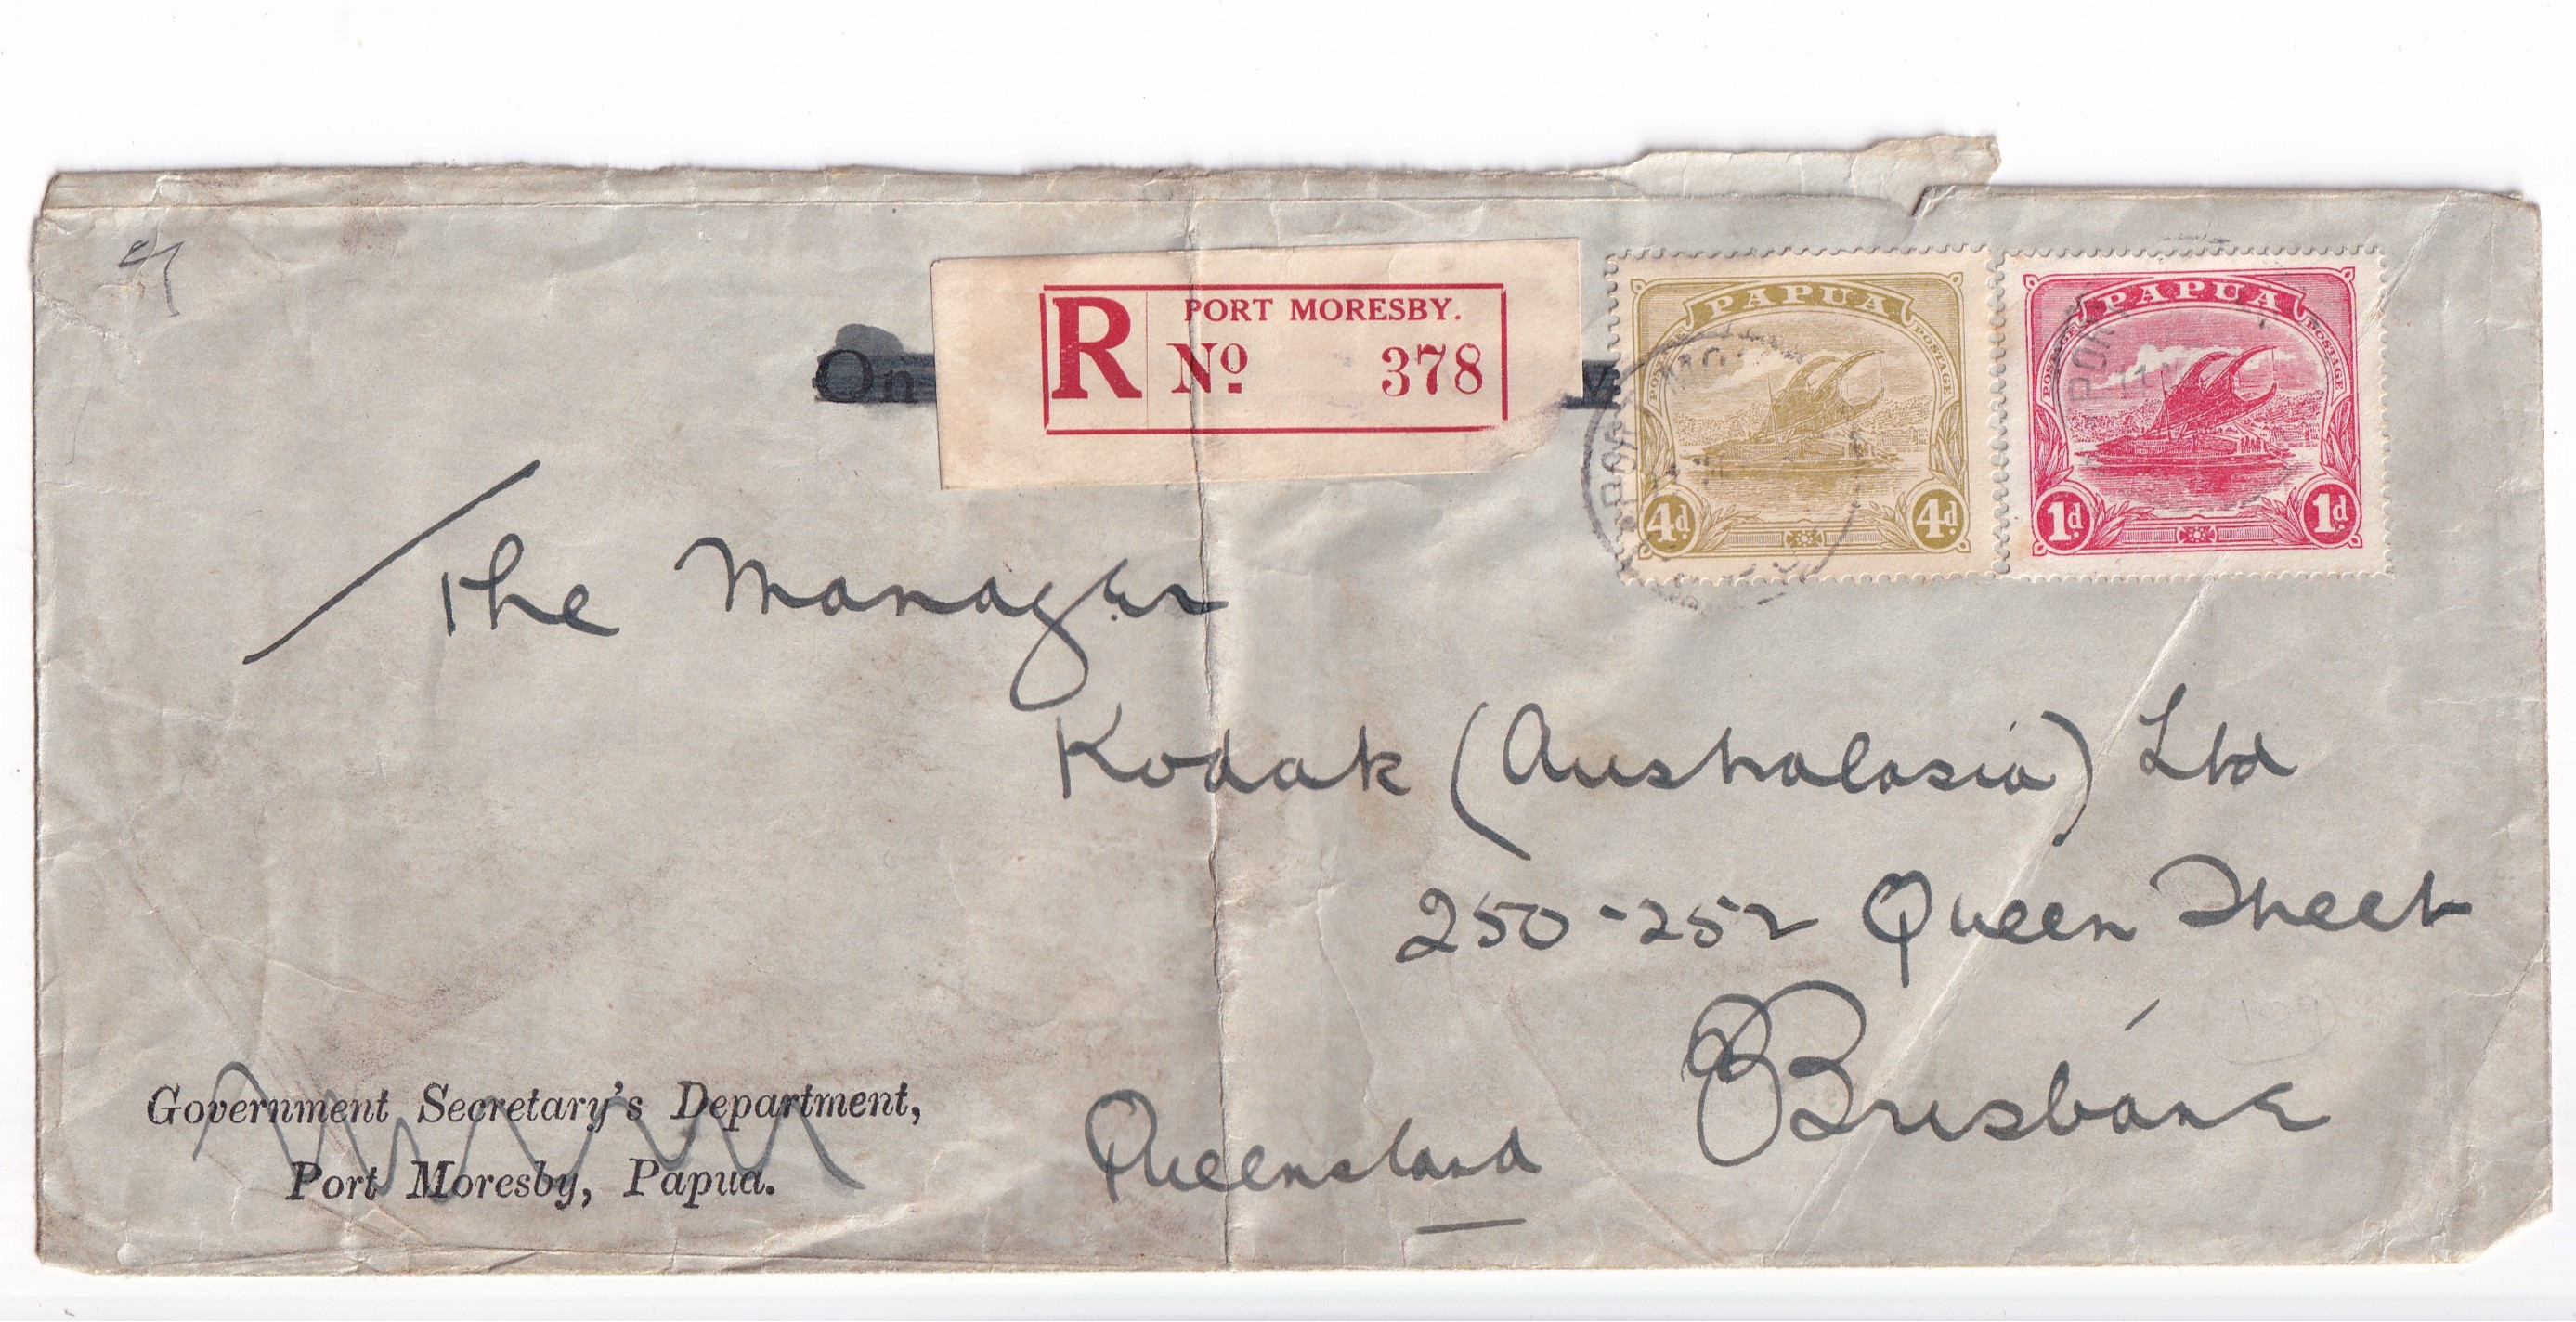 On
R PORT MORESBY.
No 378
PAPUA
POSTAGE POSTAGE
4d 4d
PAPUA
POSTAGE POSTAGE
1d 1d
PORT
The Manager
Kodak (Australasia) Ltd
250-252 Queen Street
Brisbane
Queensland
Government Secretary's Department,
Port Moresby, Papua.